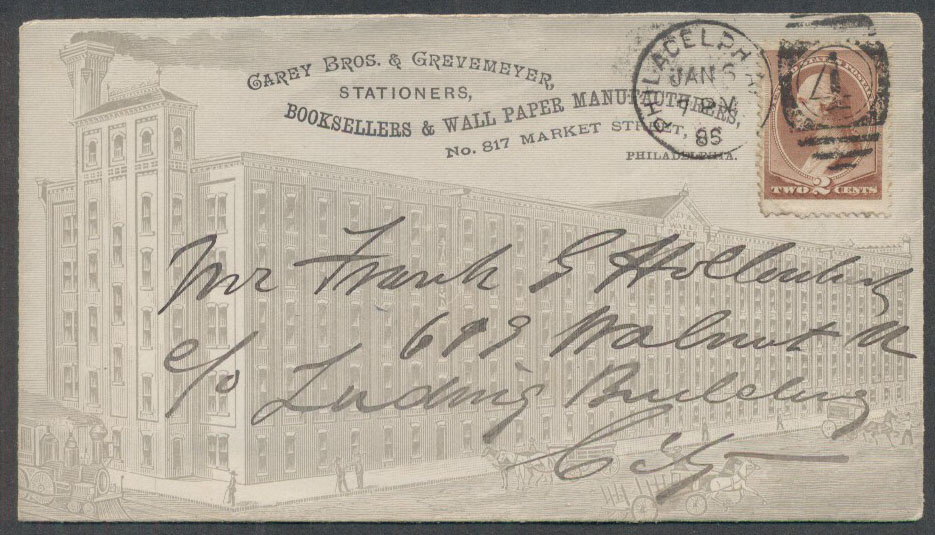 CAREY BROS. & GREVEMEYER,
STATIONERS,
BOOKSELLERS & WALL PAPER MANUFACTURERS,
No. 817 MARKET STREET,
PHILADELPHIA.
PHILADELPHIA
JAN 6
9 PM
86
1
UNITED STATES POSTAGE
TWO 2 CENTS
WALL
PAPER
Mr Frank G
Walnut
c/o Ludwig Building
City